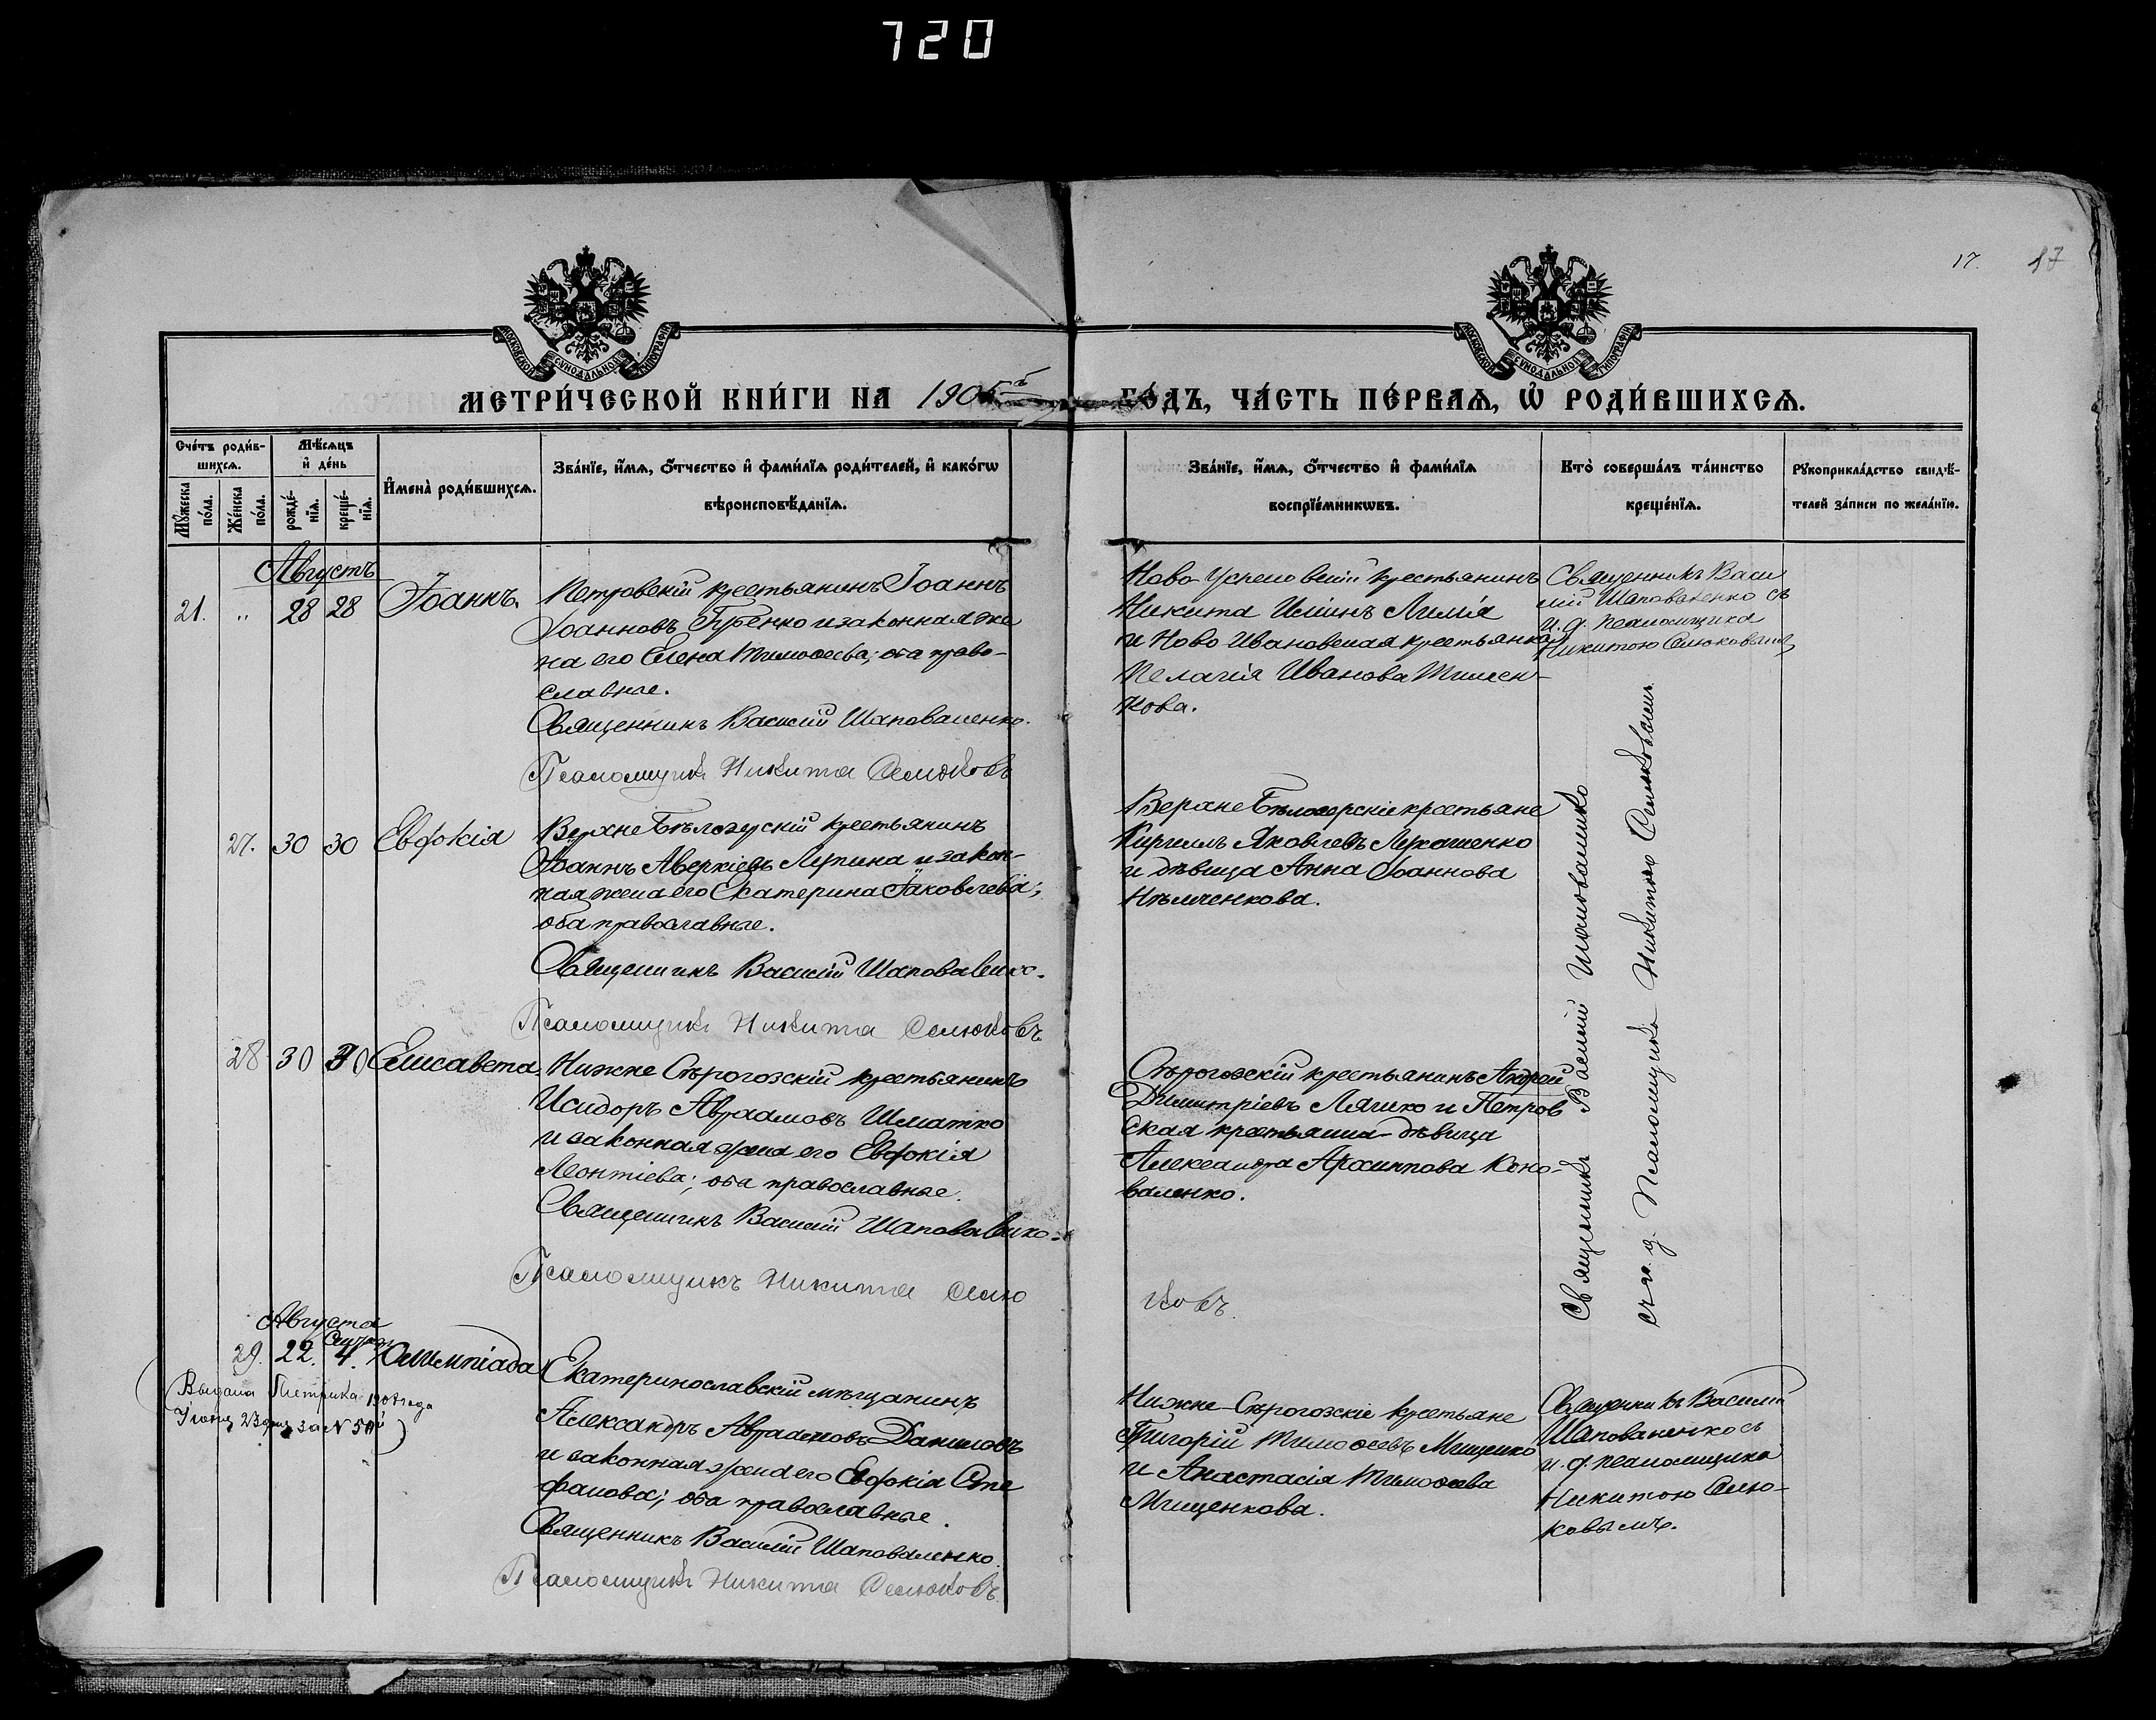 720
17.
МОСКОВСКОЙ СѴНОДАЛЬНОЙ ТИПОГРАФІИ
МОСКОВСКОЙ СѴНОДАЛЬНОЙ ТИПОГРАФІИ
МЕТРИ́ЧЕСКОЙ КНИ́ГИ НА 190 ГО́ДЪ, ЧА́СТЬ ПЕ́РВАѦ, Ѡ҆ РОДИ́ВШИХСѦ.
Сче́тъ роди́в-
шихсѧ.
Мꙋ́жеска по́ла.
Же́нска по́ла.
Мѣ́сѧцъ
и҆ де́нь
рожде́-
нїѧ.
креще́-
нїѧ.
И҆мена̀ роди́вшихсѧ.
Зва́нїе, и҆́мѧ, ѻ҆́тчество и҆ фами́лїѧ роди́телей, и҆ како́гѡ
вѣроисповѣ́данїѧ.
Зва́нїе, и҆́мѧ, ѻ҆́тчество и҆ фами́лїѧ
воспрїе́мникѡвъ.
Кто̀ соверша́лъ та́инство
креще́нїѧ.
Рꙋкоприкла́дство свидѣ́-
телей за́писи по жела́нїю.
Августъ
21. „ 28 28 Іоаннъ.
Петровскій крестьянинъ Іоаннъ
Іоанновъ и законная же
на его Елена Тимоѳеева; оба право-
славные.
Священникъ Василій Шаповаленко.
Псаломщикъ Никита Селюковъ
Ново-Успеновскій крестьянинъ
Никита
и Ново Ивановская крестьянка
Пелагія Иванова Тимчен-
кова.
Священникъ Васи
лій Шаповаленко съ
и. д. псаломщика
Никитою Селюковымъ
27. 30 30 Евдокія
Верхне Бѣлозерскій крестьянинъ
Іоаннъ Аверкіевъ Лупина и закон-
ная жена его Екатерина Іаковлева;
оба православные.
Священникъ Василій Шаповаленко.
Псаломщикъ Никита Селюковъ
Верхне Бѣлозерскіе крестьяне
Кириллъ Яковлевъ Лукашенко
и дѣвица Анна Іоаннова
Нѣмченкова.
Священникъ Василій Шаповаленко
съ и. д. Псаломщика Никитою Селюковымъ
28 30 30 Елисавета
Нижне Сѣрогозскій крестьянинъ
Исидоръ Авраамовъ Шматко
и законная жена его Евдокія
Леонтіева; оба православные.
Священникъ Василій Шаповаленко.
Псаломщикъ Никита Селю
ковъ.
Сѣрогозскій крестьянинъ Андрей
Димитріевъ Лячко и Петров
ская крестьянка-дѣвица
Александра Архиппова Коно-
валенко.
Августа
29. 22. 4. Олимпіада
(Выдана Метрика
23 за №)
Екатеринославскій мѣщанинъ
Александръ Авраамовъ Даниловъ
и законная жена его Евдокія Сте
фанова; оба православные.
Священникъ Василій Шаповаленко.
Псаломщикъ Никита Селюковъ.
Нижне-Сѣрогозскіе крестьяне
Григорій Тимоѳеевъ Мищенко
и Анастасія Тимоѳеева
Мищенкова.
Священникъ Василій
Шаповаленко съ
и. д. псаломщика
Никитою Селю-
ковымъ.